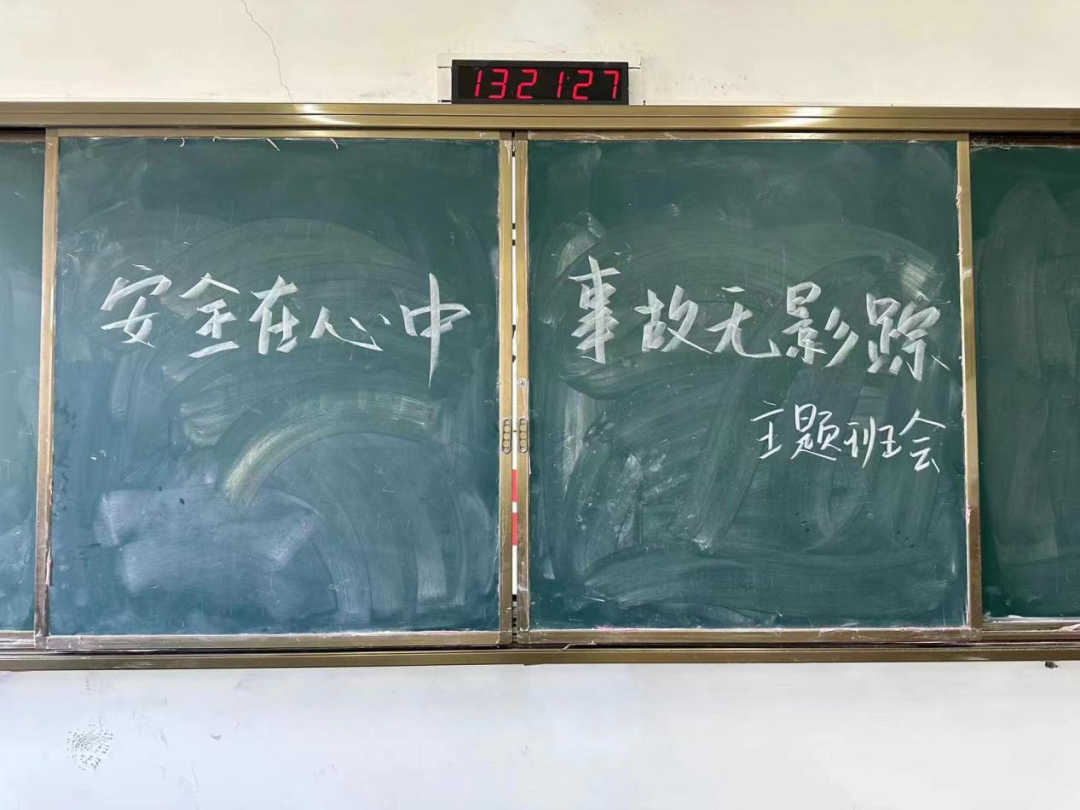 13:21:27
安全在心中 事故无影踪
主题班会